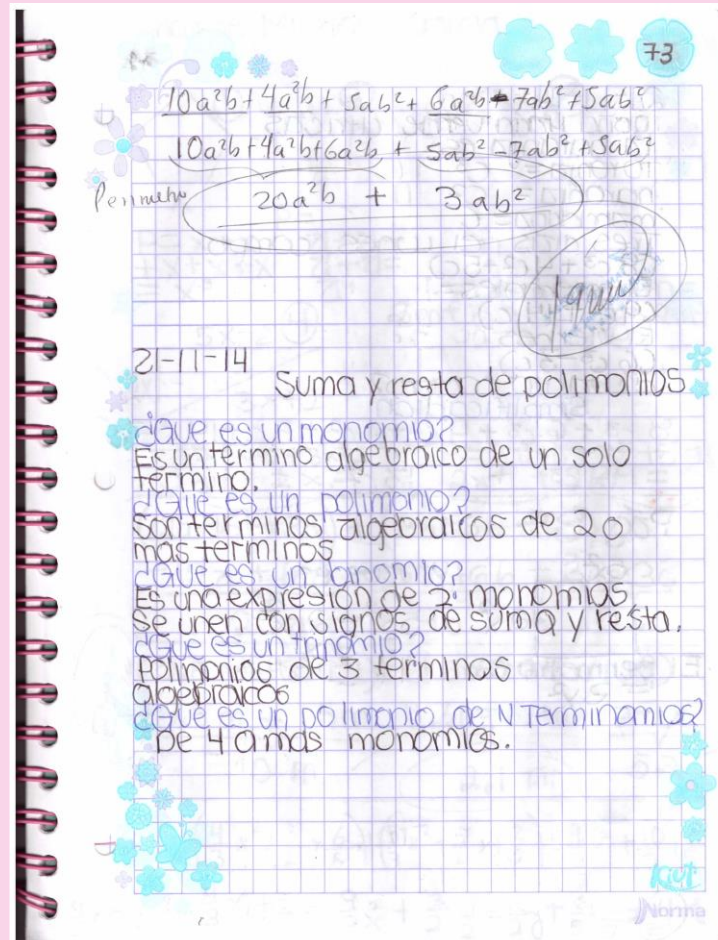 73
10a²b + 4a²b + 5ab² + 6a²b - 7ab² + 5ab²
10a²b + 4a²b + 6a²b + 5ab² - 7ab² + 5ab²
Perimetro 20a²b + 3ab²
21-11-14
Suma y resta de polimonios
¿Que es un monomio?
Es un termino algebraico de un solo
termino.
¿Que es un polimonio?
Son terminos algebraicos de 2 o
mas terminos
¿Que es un binomio?
Es una expresion de 2 monomios
Se unen con signos de suma y resta.
¿Que es un trinomio?
Polinonios de 3 terminos
algebraicos
¿Que es un polimonio de N Terminamios?
De 4 a mas monomios.
Kiut
Norma